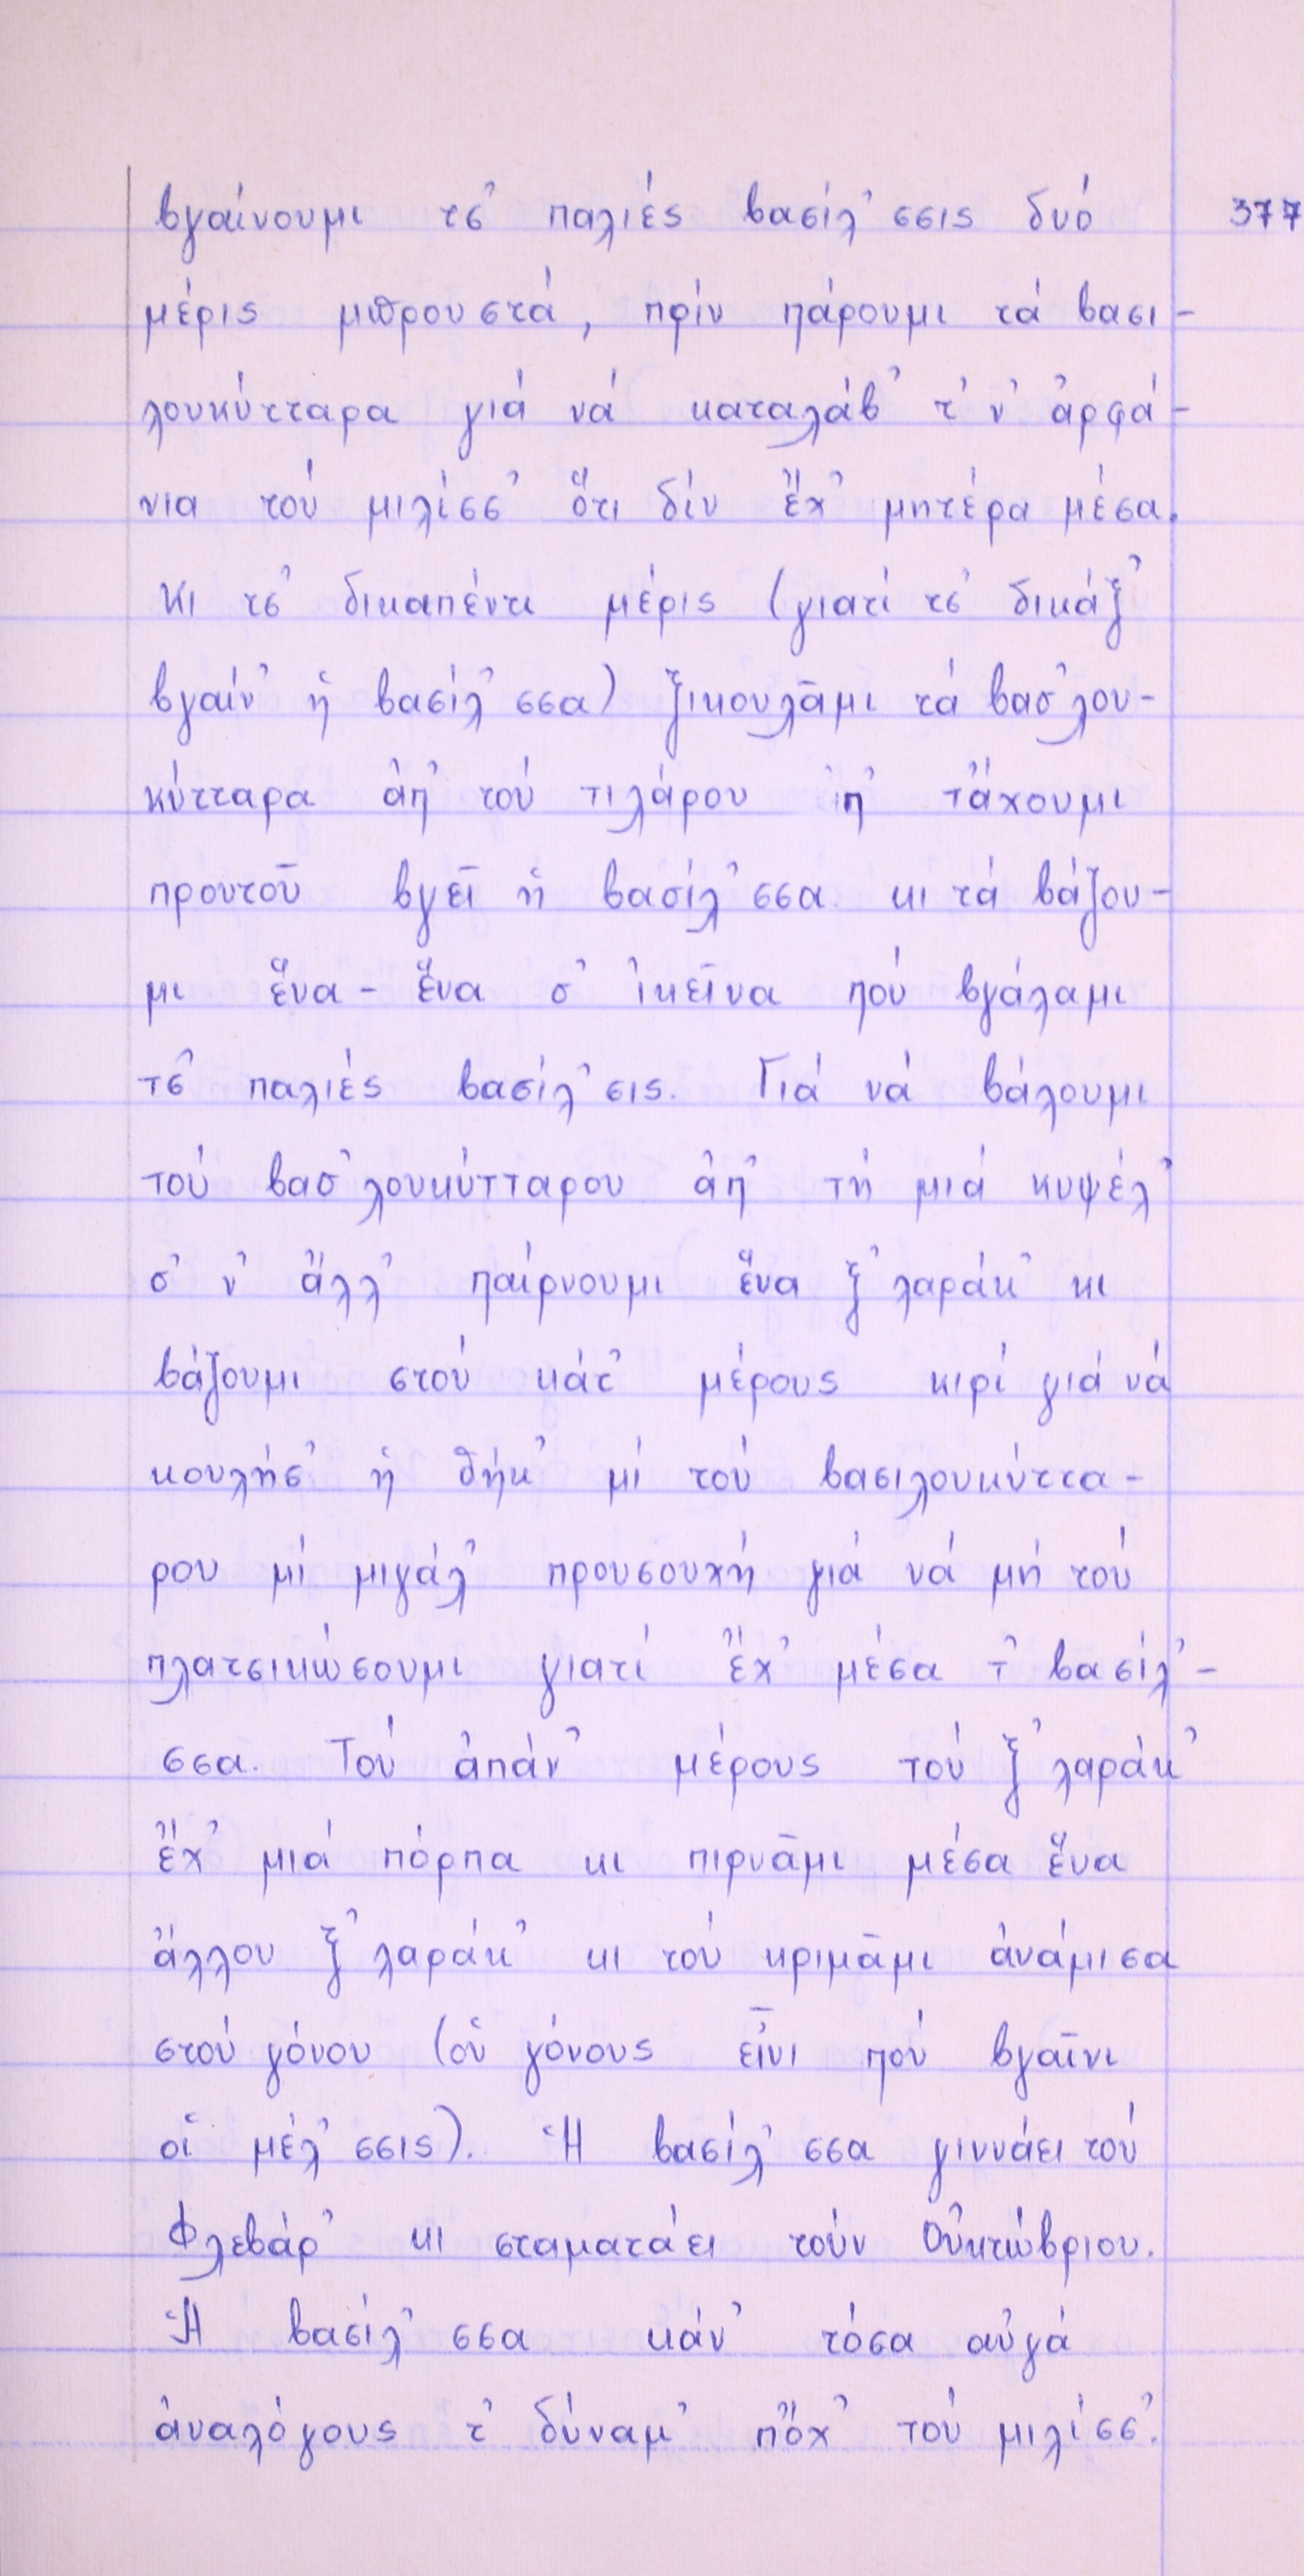 βγαίνουμι τσ' παλιές βασίλ' σσις δυό 377
μέρις μπρουστά, πρίν πάρουμι τά βασι-
λουκύτταρα γιά νά καταλάβ' τ' ν' ἀρφά-
νια τού μιλίσσ' ὅτι δέν ἔχ' μητέρα μέσα.
Κι τσ' δικαπέντι μέρις (γιατί τσ' δικάξ'
βγαίν' ἡ βασίλ' σσα) ξικουλᾶμι τά βασ'λου-
κύτταρα ἀπ' τού τιλάρου π' τἄχουμι
προυτοῦ βγεῖ ἡ βασίλ' σσα κι τά βάζου-
μι ἕνα - ἕνα σ' ἰκεῖνα πού βγάλαμι
τσ' παλιές βασίλ' σις. Γιά νά βάλουμι
τού βασ'λουκύτταρου ἀπ' τή μιά κυψέλ'
σ' ν' ἄλλ' παίρνουμι ἕνα ξ' λαράκ' κι
βάζουμι στού κάτ' μέρους κιρί γιά νά
κουλήσ' ἡ θήκ' μί τού βασιλουκύττα-
ρου μί μιγάλ' προυσουχή γιά νά μή τού
πλατσικώσουμι γιατί ἔχ' μέσα τ' βασίλ'-
σσα. Τού ἀπάν' μέρους τού ξ' λαράκ'
ἔχ' μιά πόρπα κι πιρνᾶμι μέσα ἕνα
ἄλλου ξ' λαράκ' κι τού κριμᾶμι ἀνάμισα
στού γόνου (οὑ γόνους εἶνι πού βγαῖνι
οἱ μέλ' σσις). Ἡ βασίλ' σσα γιννάει τού
Φλεβάρ' κι σταματάει τούν Οὐκτώβριου.
Ἡ βασίλ' σσα κάν' τόσα αὐγά
ἀναλόγους τ' δύναμ' πὄχ' τού μιλίσσ'.